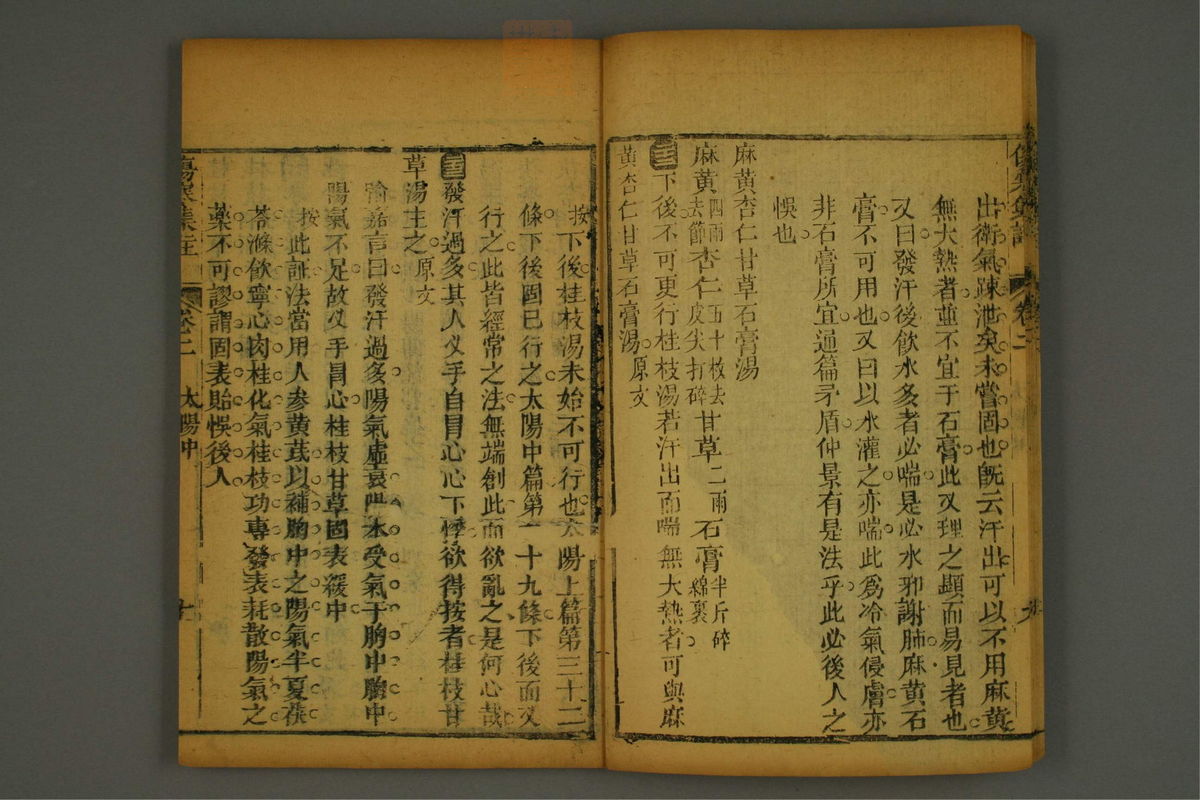 出衛氣疎泄矣未嘗固也旣云汗出可以不用麻黃
無大熱者並不宜于石膏此又理之顯而易見者也
又曰發汗後飲水多者必喘是必水邪謝肺麻黃石
膏不可用也又曰以水灌之亦喘此爲冷氣侵膚亦
非石膏所宜通篇矛盾仲景有是法乎此必後人之
悞也
麻黃杏仁甘草石膏湯
麻黃四兩去節杏仁五十枚去皮尖打碎甘草二兩石膏半斤碎綿裹
下後不可更行桂枝湯若汗出而喘無大熱者可與麻
黃杏仁甘草石膏湯原文
傷寒集註 卷二 太陽中
按下後桂枝湯未始不可行也太陽上篇第三十二
條下後固已行之太陽中篇第一十九條下後面又
行之此皆經常之法無端創此而欲亂之是何心哉
發汗過多其人叉手自冒心心下悸欲得按者桂枝甘
草湯主之原文
喻嘉言曰發汗過多陽氣虛衰陽本受氣于胸中胸中
陽氣不足故叉手冒心桂枝甘草固表緩中
按此証法當用人参黃茋以補胸中之陽氣半夏茯
苓滌飲寧心肉桂化氣桂枝功專發表耗散陽氣之
藥不可謬謂固表貽悞後人